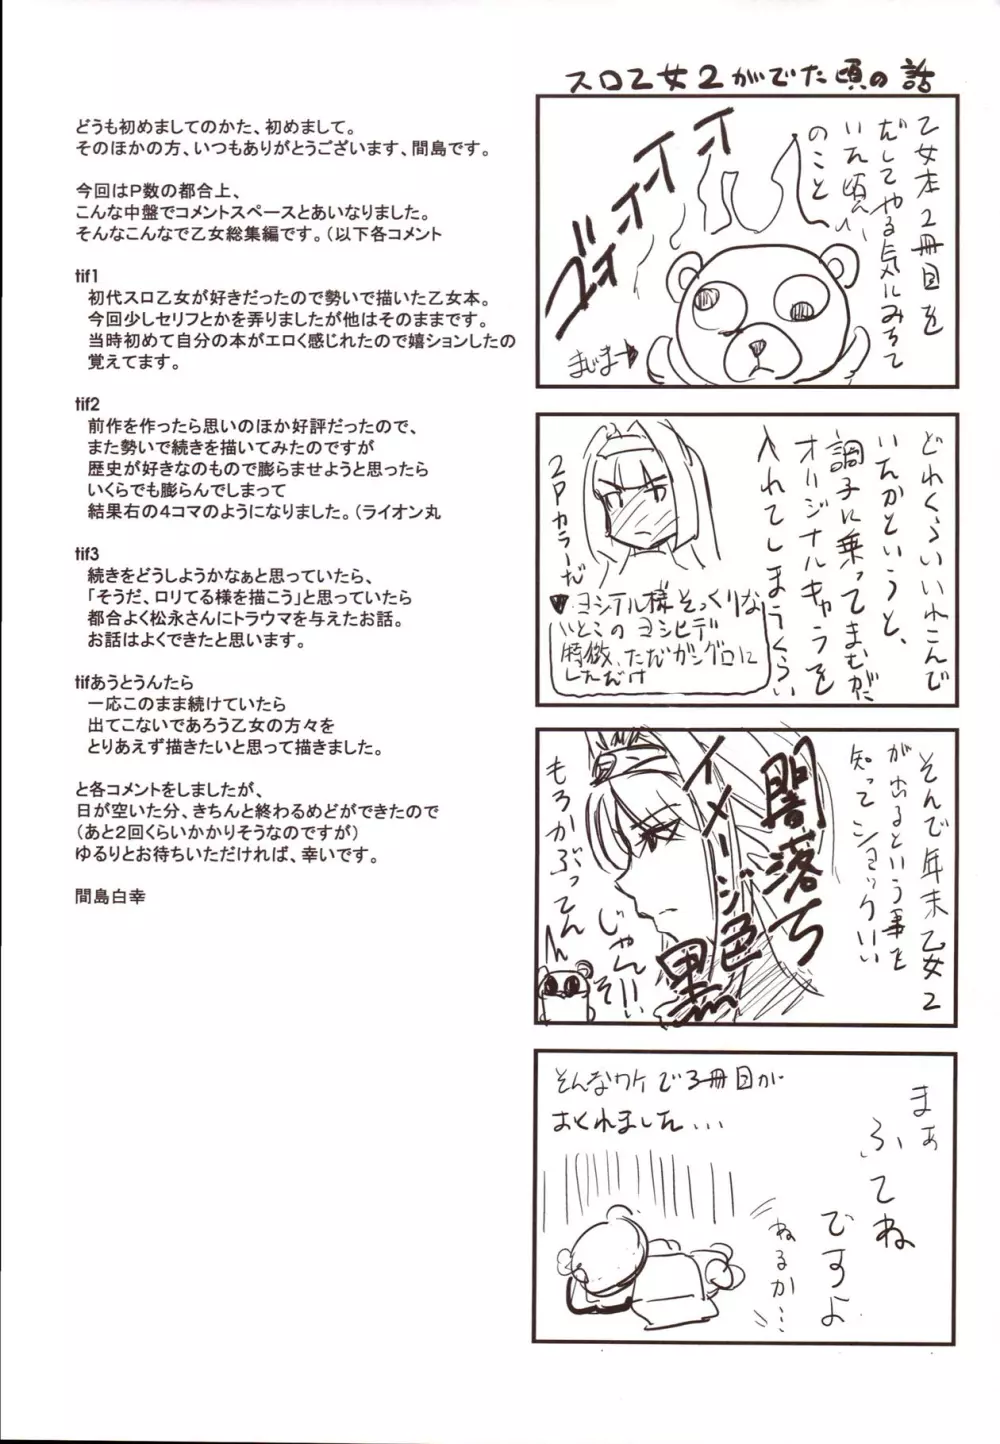 どうも初めましてのかた、初めまして。
そのほかの方、いつもありがとうございます、間島です。
今回はP数の都合上、
こんな中盤でコメントスペースとあいなりました。
そんなこんなで乙女総集編です。(以下各コメント
tif1
初代スロ乙女が好きだったので勢いで描いた乙女本。
今回少しセリフとかを弄りましたが他はそのままです。
当時初めて自分の本がエロく感じれたので嬉ションしたの
覚えてます。
tif2
前作を作ったら思いのほか好評だったので、
また勢いで続きを描いてみたのですが
歴史が好きなのもので膨らませようと思ったら
いくらでも膨らんでしまって
結果右の4コマのようになりました。(ライオン丸
tif3
続きをどうしようかなぁと思っていたら、
「そうだ、ロリてる様を描こう」と思っていたら
都合よく松永さんにトラウマを与えたお話。
お話はよくできたと思います。
tifあうとうんたら
一応このまま続けていたら
出てこないであろう乙女の方々を
とりあえず描きたいと思って描きました。
と各コメントをしましたが、
日が空いた分、きちんと終わるめどができたので
(あと2回くらいかかりそうなのですが)
ゆるりとお待ちいただければ、幸いです。
間島白幸
スロ乙女2がでた頃の話
乙女本2冊目を
だしてやる気にみちて
いた頃
のこと
ズオオイイイ
まじま→
どれくらいいれこんで
いたかというと、
調子に乗ってまむがだ
オリージナルキャラを
入れてしまうくらい
2Pカラーだ
ヨシテル様そっくりな
いとこのヨシヒデ
特徴、ただガングロに
しただけ
そんで年末乙女2
が出るという事を
知ってショックいい
闇落ち
イメージ色
黒
もろかぶってん
じゃん
まぁ
ふてね
ですよ
そんなワケで3冊目が
おくれました...
ねるか...